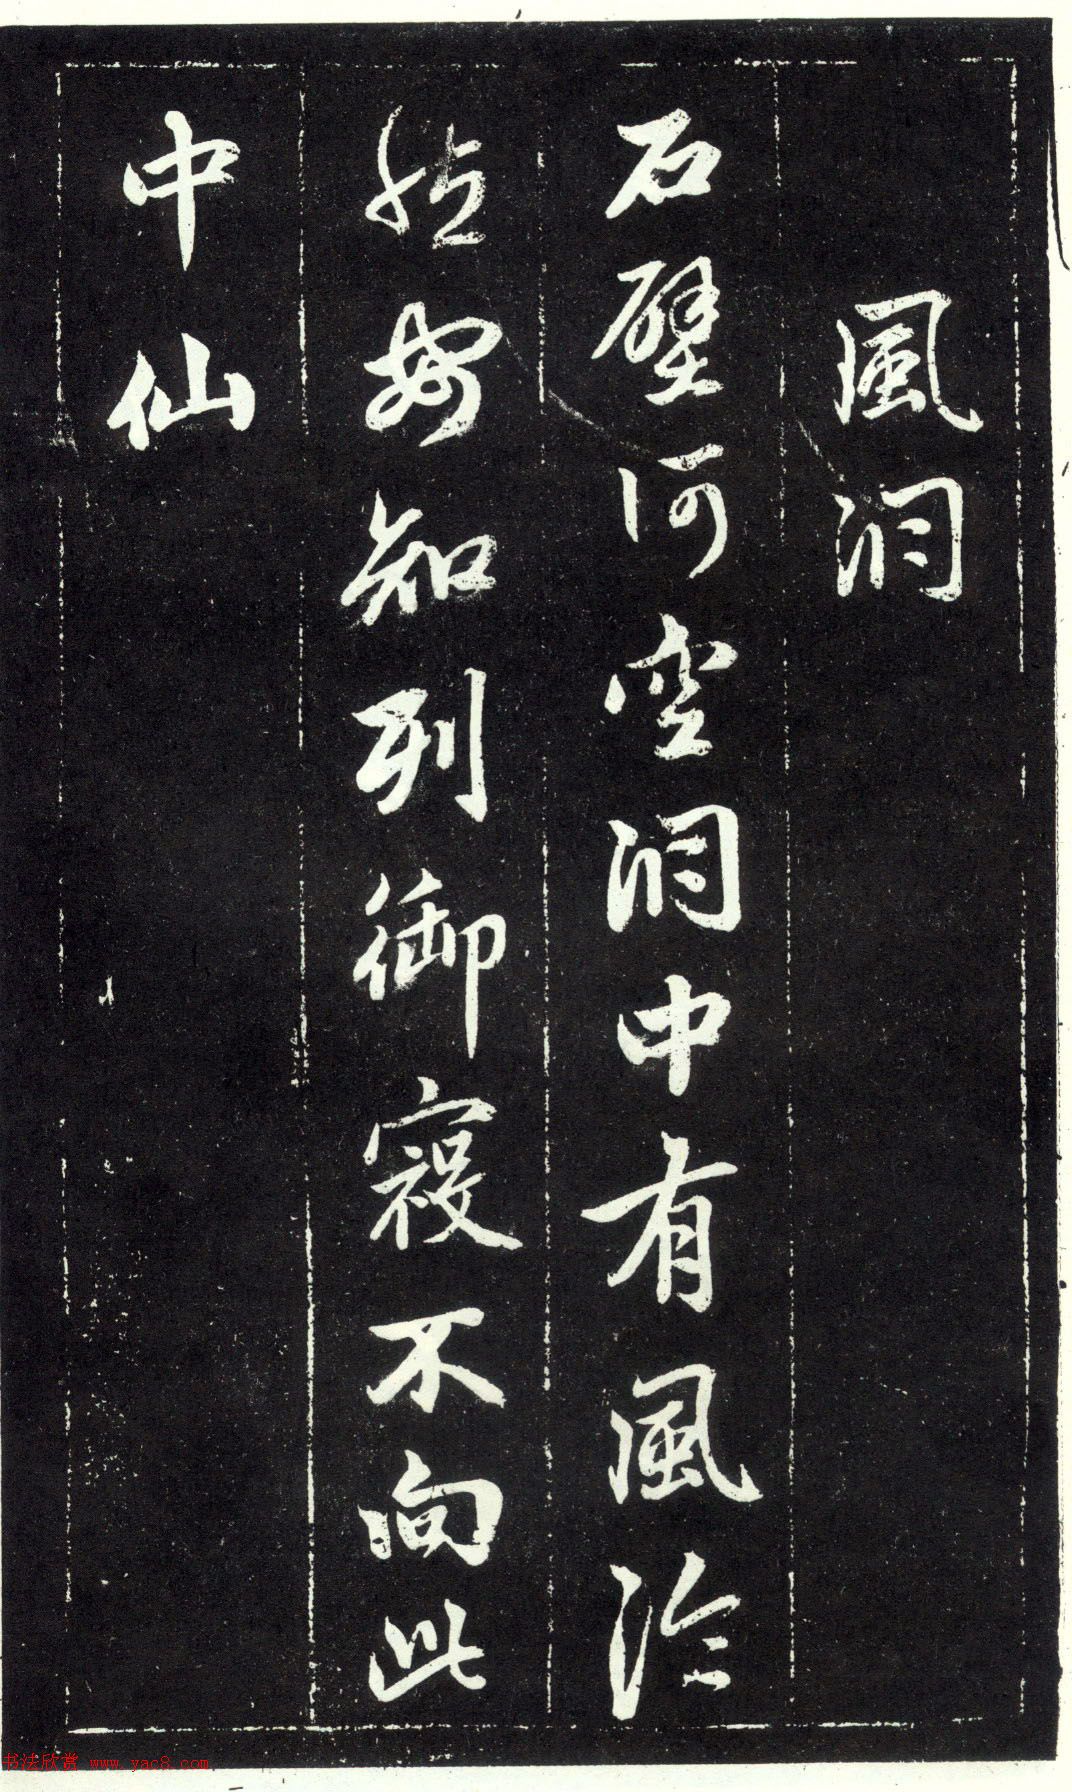 風洞
石壁何空洞中有風泠
然安知列御寇不向此
中仙
书法欣赏 www.yac8.com